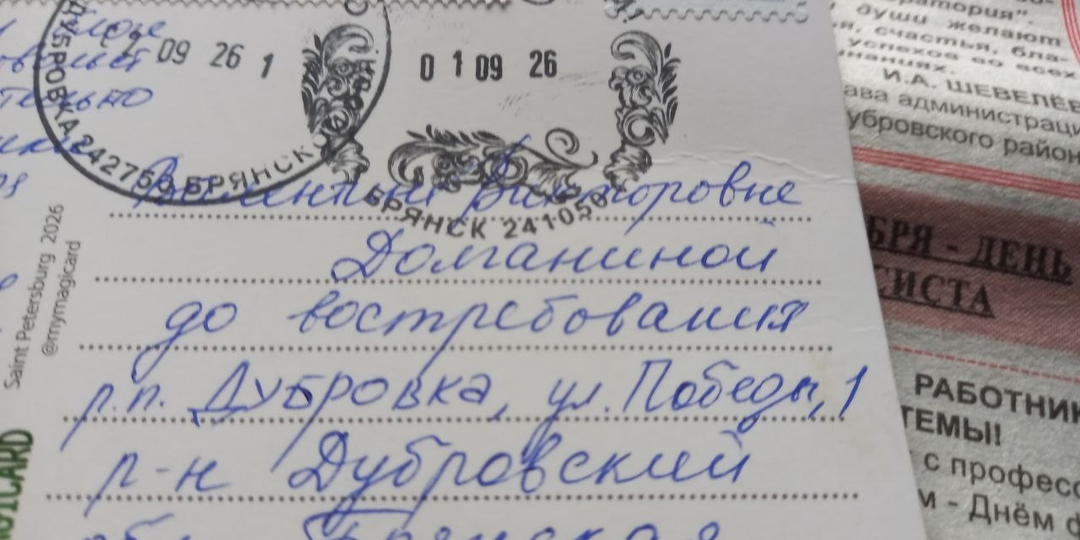 ДУБРОВКА 242750 БРЯНСК
09 26 1
01 09 26
БРЯНСК 241050
тельно
Валентине Викторовне
Долганиной
до востребования
р.п. Дубровка, ул. Победы, 1
р-н Дубровский
обл. Брянская
Saint Petersburg 2026
@mymagicard
GICARD
атория".
души желают
я, счастья, бла-
успехов во всех
наниях.
И.А. ШЕВЕЛЁВ
ава администраци
убровского район
БРЯ - ДЕНЬ
СИСТА
РАБОТНИК
ТЕМЫ!
с професс
м - Днём ф